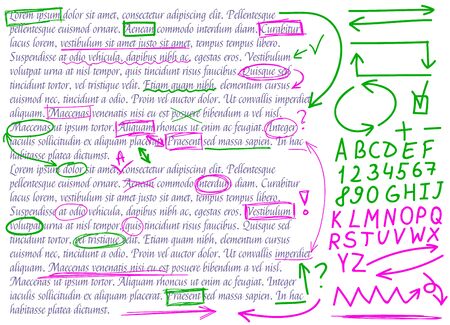 Lorem ipsum dolor sit amet, consectetur adipiscing elit. Duis
pellentesque euismod cursus. Aenean commodo interdum diam. Curabitur
lacus lorem, vestibulum sit amet justo sit amet, tempus tempus libero.
Suspendisse at odio vehicula, dapibus nibh ac, egestas eros. Vestibulum
volutpat urna at nisl tempor, quis tincidunt risus faucibus. Quisque sed
tincidunt tortor, vel tristique velit. Etiam quam nibh, elementum cursus
euismod nec, tincidunt et dolor. Proin vel auctor dolor. Ut convallis imperdiet
aliquam. Maecenas venenatis nisi eu est posuere bibendum a vel nisl.
Maecenas ut ipsum tortor. Aliquam rhoncus ut enim ac feugiat. Integer
iaculis sollicitudin ex aliquam placerat. Praesent sed massa sapien. In hac
habitasse platea dictumst.
A
Lorem ipsum dolor sit amet, consectetur adipiscing elit.
pellentesque euismod cursus. Aenean commodo interdum diam. Curabitur
lacus lorem, vestibulum sit amet justo sit amet, tempus tempus libero.
Suspendisse at odio vehicula, dapibus nibh ac, egestas eros. Vestibulum
volutpat urna at nisl tempor, quis tincidunt risus faucibus. Quisque sed
tincidunt tortor, vel tristique velit. Etiam quam nibh, elementum cursus
euismod nec, tincidunt et dolor. Proin vel auctor dolor. Ut convallis imperdiet
aliquam. Maecenas venenatis nisi eu est posuere bibendum a vel nisl.
Maecenas ut ipsum tortor. Aliquam rhoncus ut enim ac feugiat. Integer
iaculis sollicitudin ex aliquam placerat. Praesent sed massa sapien. In hac
habitasse platea dictumst.
!
?
+ −
ABCDEF
1234567
890GHIJ
KLMNOPQ
RSTUVWX
YZ
?